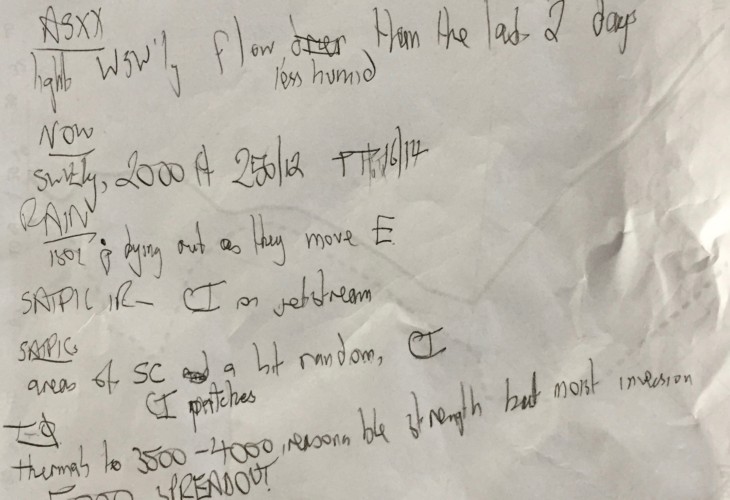 ASXX
light WSW'ly flow drier than the last 2 days
less humid
NOW
SW'ly, 2000 ft 250/12
RAIN
isol dying out as they move E
SATPIC IR - CI on jetstream
SATPIC
areas of SC and a bit random, CI
CI patches
thermals to 3500-4000, reasonable strength but moist inversion
5000 SPREADOUT